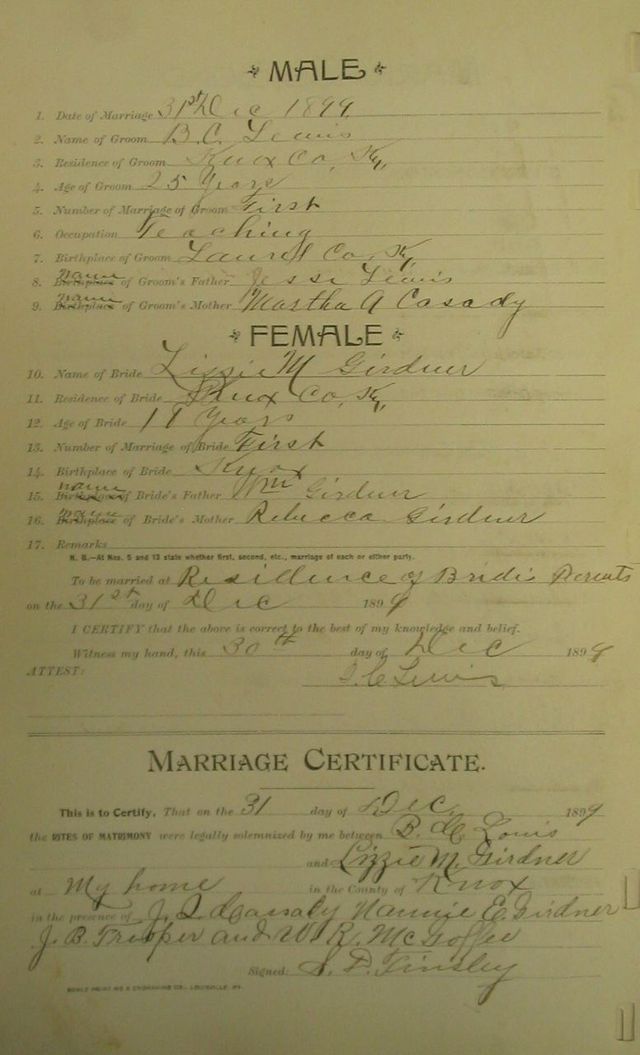 MALE
1. Date of Marriage 31st Dec 1899
2. Name of Groom B. C. Lewis
3. Residence of Groom Knox Co, Ky,
4. Age of Groom 25 Years
5. Number of Marriage of Groom First
6. Occupation Teaching
7. Birthplace of Groom Laurel Co, Ky,
8. name of Groom's Father Jesse Lewis
9. name of Groom's Mother Martha A Casady
FEMALE
10. Name of Bride Lizzie M Girdner
11. Residence of Bride Knox Co, Ky,
12. Age of Bride Years
13. Number of Marriage of Bride First
14. Birthplace of Bride Knox
15. name of Bride's Father Wm Girdner
16. name of Bride's Mother Rebecca Girdner
17. Remarks
N. B.—At Nos. 5 and 13 state whether first, second, etc., marriage of each or either party.
To be married at Residence of Brides Parents
on the 31st day of Dec 1899
I CERTIFY that the above is correct to the best of my knowledge and belief.
Witness my hand, this 30th day of Dec 189
ATTEST: Lewis
MARRIAGE CERTIFICATE.
This is to Certify, That on the 31 day of Dec 1899
the RITES OF MATRIMONY were legally solemnized by me between B. C Louis
and Lizzie M. Girdner
at My home in the County of Knox
in the presence of Nannie E. Girdner
J. B. and W. R.
Signed: Tinsley